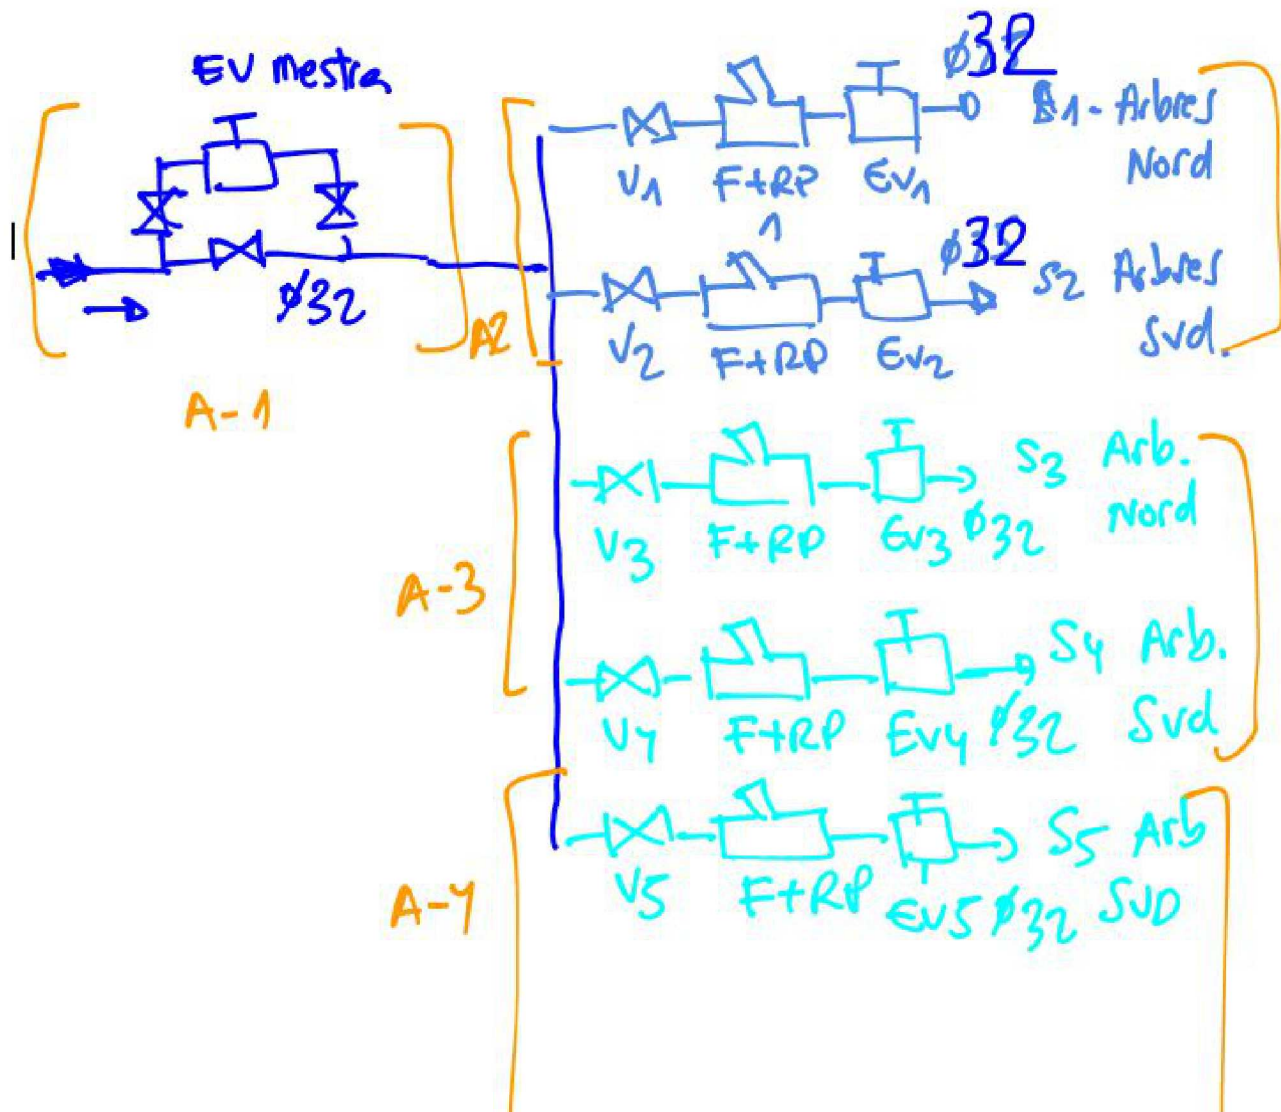 EV mestra
ø32
A-1
A2
ø32
V1 F+RP 1 EV1
1- Arbres
Nord
ø32
V2 F+RP EV2
S2 Arbres
Sud.
A-3
V3 F+RP EV3 ø32
S3 Arb.
Nord
V4 F+RP EV4 ø32
S4 Arb.
Sud
A-4
V5 F+RP EV5 ø32
S5 Arb
SUD